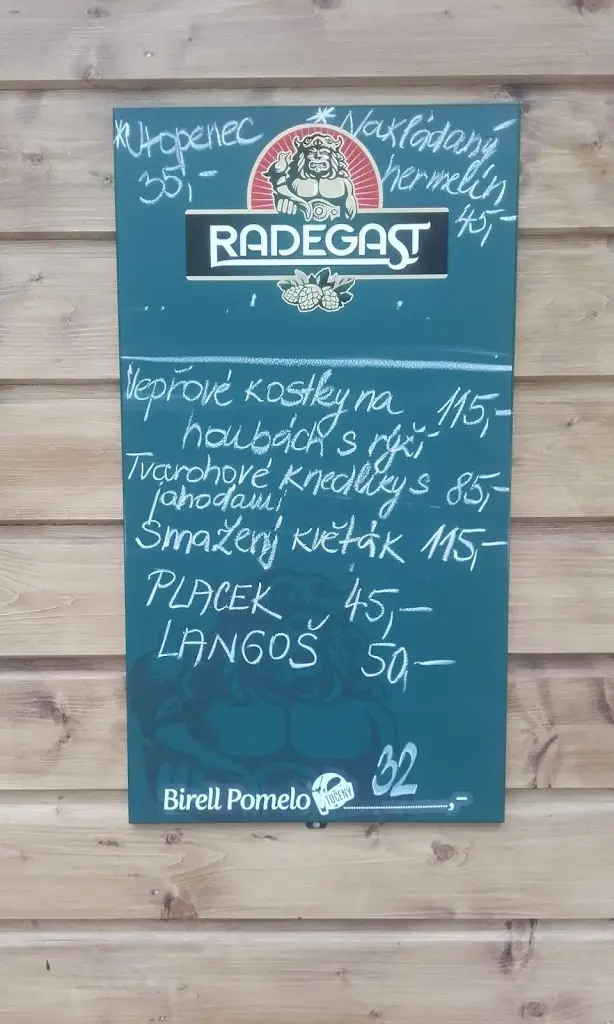 *Utopenec
35,-
*Nakládaný
hermelín
45,-
RADEGAST
Vepřové kostky na 115,-
houbách s rýží
Tvarohové knedlíky s 85,-
jahodami
Smažený květák 115,-
PLACEK 45,-
LANGOŠ 50,-
32
Birell Pomelo TOČENÝ ,-